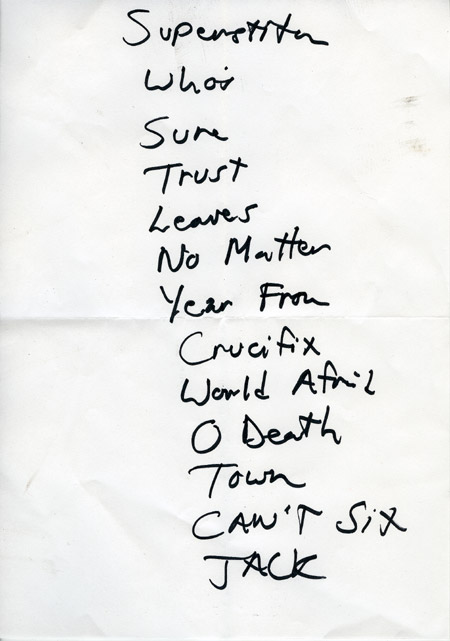 Superstition
Who's
Sure
Trust
Leaves
No Matter
Year From
Crucifix
World Afril
O Death
Town
CAN'T Six
JACK